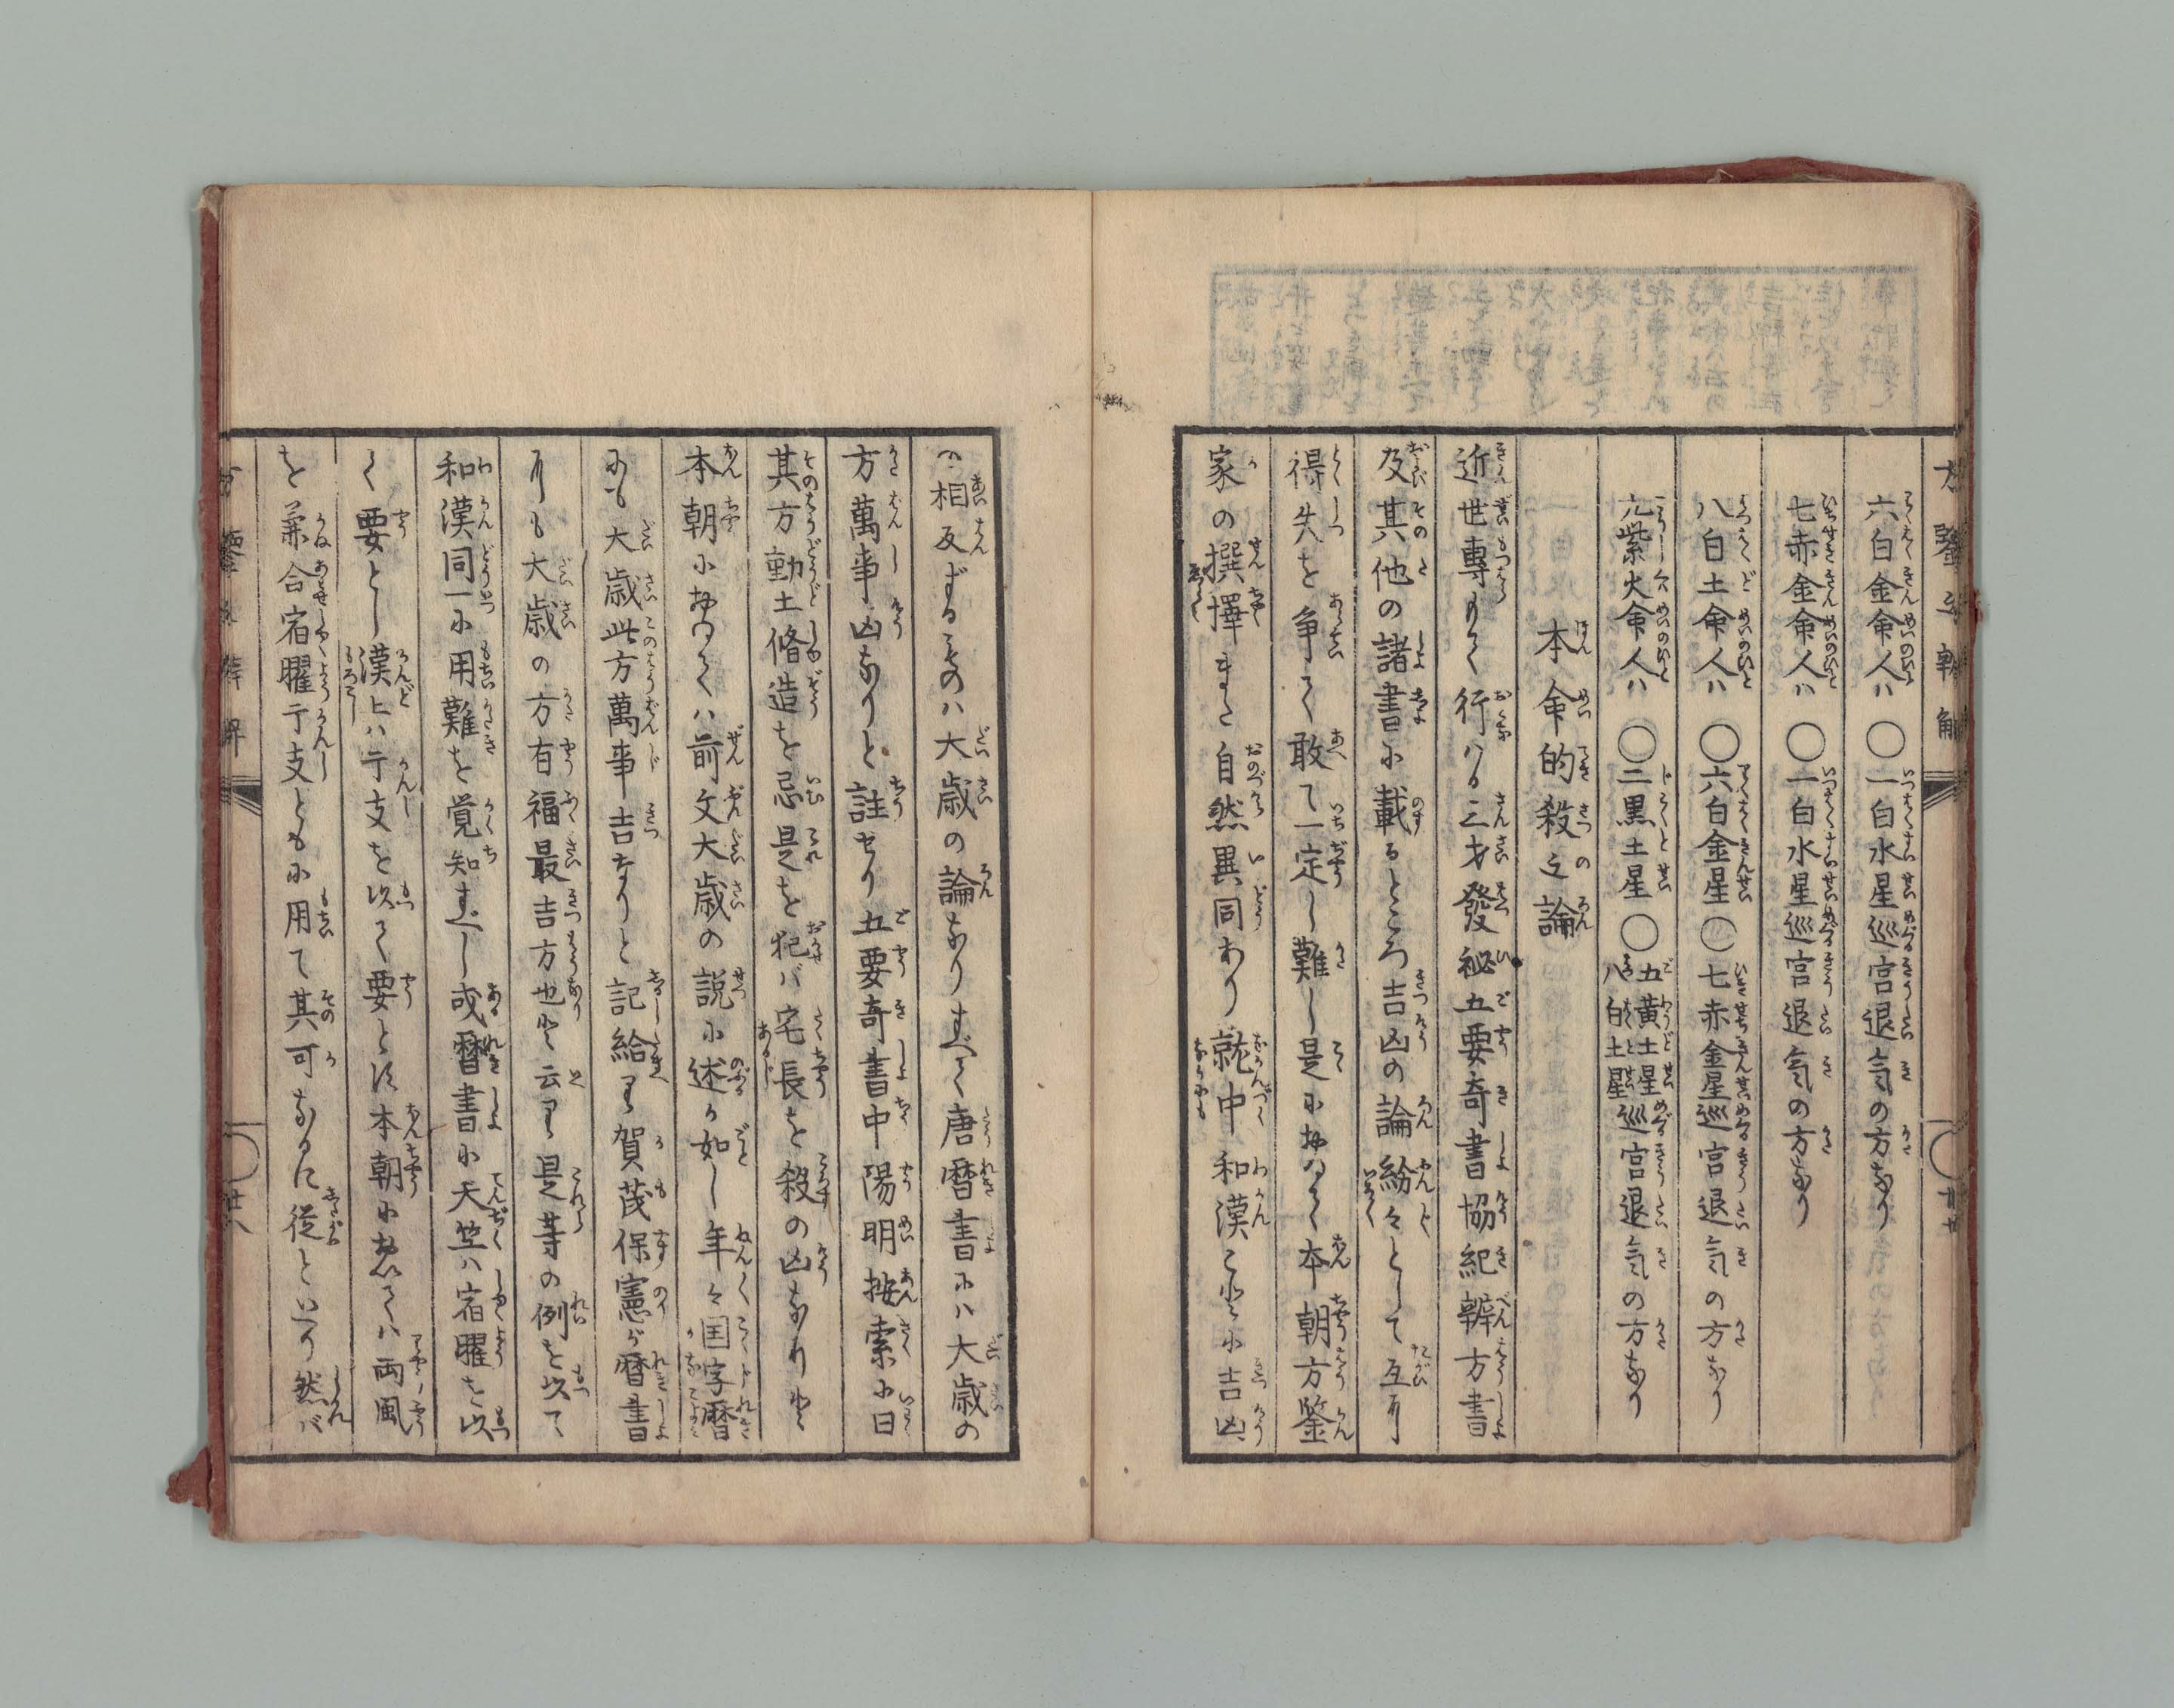 六白金命人ハ　〇一白水星巡宮退気の方なり
七赤金命人ハ　〇一白水星巡宮退気の方なり
八白土命人ハ　〇六白金星〇七赤金星巡宮退気の方なり
九紫火命人ハ　〇二黒土星〇五黄土星八白土星巡宮退気の方なり
本命的殺之論
近世專らに行ハるゝ三才發秘五要奇書協紀辨方書
及其他の諸書に載るところ吉凶の論紛々として互に
得失を争て敢て一定し難し是に於て本朝方鑒
家の撰擇また自然異同あり就中和漢ことに吉凶
の相反ずるものハ大歳の論なりすべて唐暦書にハ大歳の
方萬事凶なりと註せり五要奇書中陽明按索に曰
其方動土脩造を忌是を犯バ宅長を殺の凶なりと
本朝に於てハ前文大歳の説に述る如し年々国字暦
にも大歳此方萬事吉なりと記給ひ賀茂保憲が暦書
にも大歳の方有福最吉方也と云り是等の例を以て
和漢同一に用難を覚知すべし或暦書に天竺ハ宿曜を以
て要とし漢土ハ干支を以て要とす本朝に於てハ両國
を兼合宿曜干支ともに用て其可なるに従といふ然バ
廿八